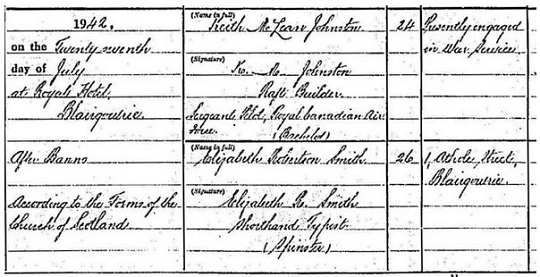 1942.
on the Twenty seventh
day of July
at Royal Hotel,
Blairgowrie
After Banns
According to the Forms of the
Church of Scotland
(Name in full)
Keith McLean Johnston
(Signature)
K. M. Johnston
Raft Builder
Sergeant Pilot, Royal Canadian Air
Force
(Bachelor)
(Name in full)
Elizabeth Robertson Smith
(Signature)
Elizabeth R. Smith
Shorthand Typist
(Spinster)
24
26
Presently engaged
in War Service.
1, Athole Street,
Blairgowrie.